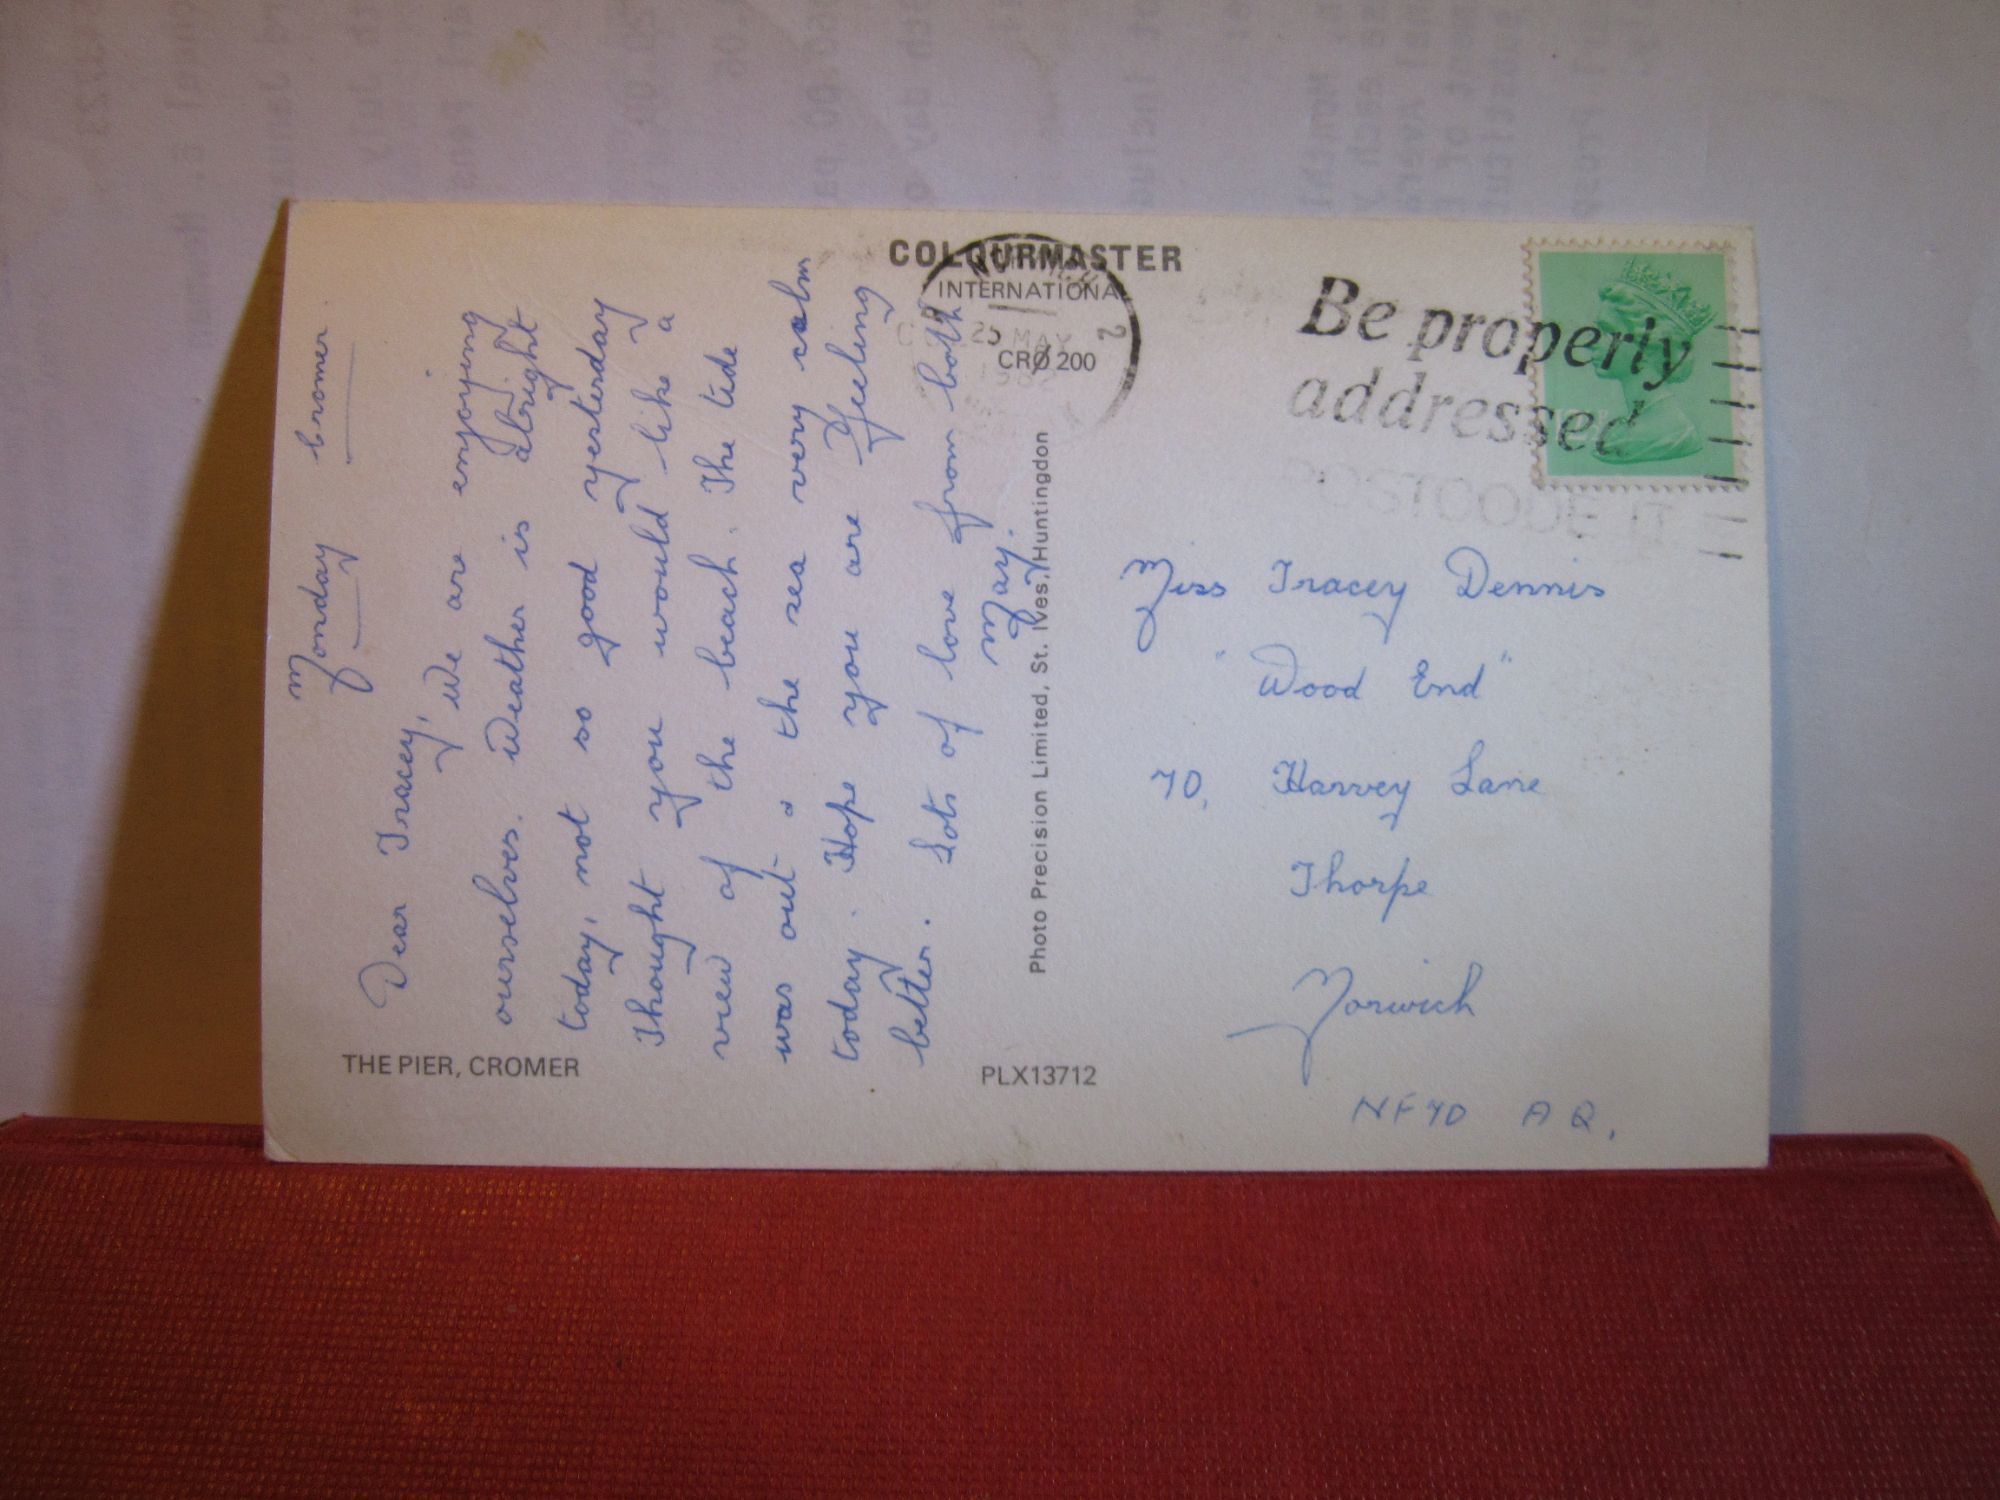 COLOURMASTER
INTERNATIONAL
CRO 200
25 MAY
1982
Be properly
addressed
POSTCODE IT
Monday Cromer
Dear Tracey,
We are enjoying
ourselves. Weather is alright
today, not so good yesterday
Thought you would like a
view of the beach. The tide
was out & the sea very calm
today. Hope you are feeling
better. Lots of love from both
May.
Photo Precision Limited, St. Ives, Huntingdon
Miss Tracey Dennis
"Wood End"
70, Harvey Lane
Thorpe
Norwich
NF70 AQ.
THE PIER, CROMER
PLX13712